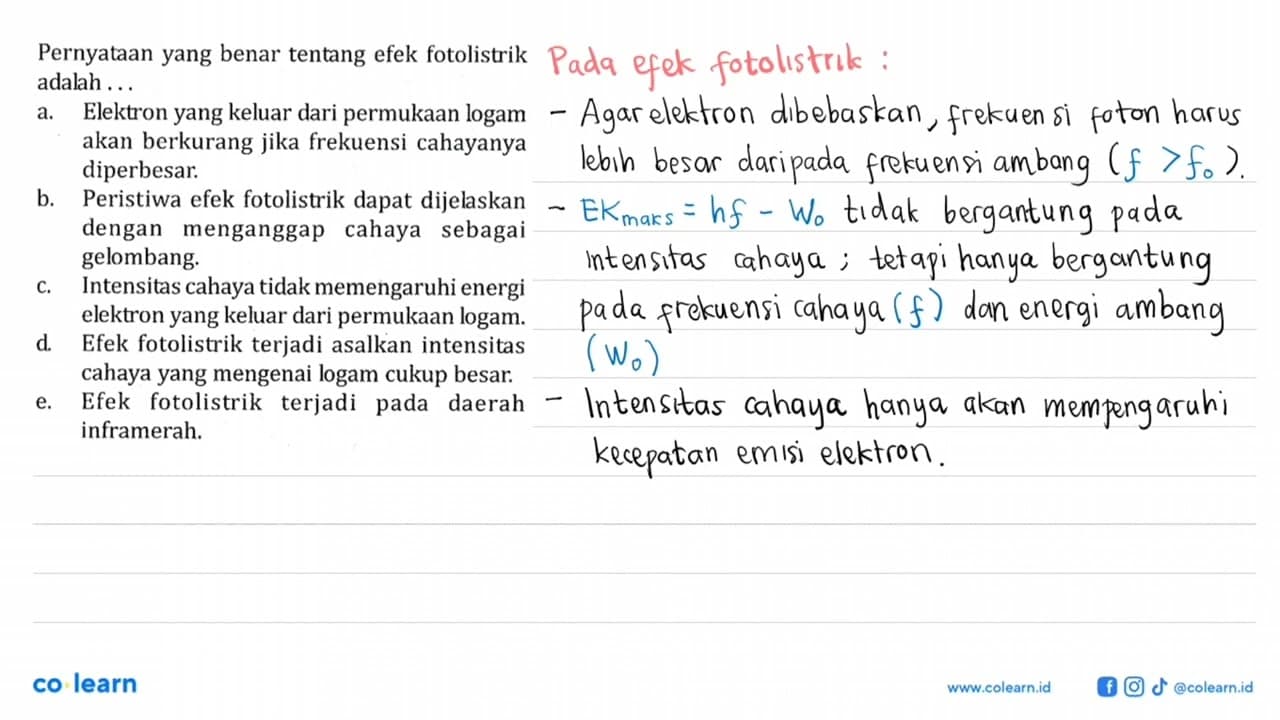 Pernyataan yang benar tentang efek fotolistrik
adalah . . .
a. Elektron yang keluar dari permukaan logam
akan berkurang jika frekuensi cahayanya
diperbesar.
b. Peristiwa efek fotolistrik dapat dijelaskan
dengan menganggap cahaya sebagai
gelombang.
c. Intensitas cahaya tidak memengaruhi energi
elektron yang keluar dari permukaan logam.
d. Efek fotolistrik terjadi asalkan intensitas
cahaya yang mengenai logam cukup besar.
e. Efek fotolistrik terjadi pada daerah
inframerah.
Pada efek fotolistrik :
- Agar elektron dibebaskan, frekuensi foton harus
lebih besar daripada frekuensi ambang (f > f₀).
- EKmaks = hf - W₀ tidak bergantung pada
intensitas cahaya ; tetapi hanya bergantung
pada frekuensi cahaya (f) dan energi ambang
(W₀)
- Intensitas cahaya hanya akan mempengaruhi
kecepatan emisi elektron.
co learn
www.colearn.id
@colearn.id